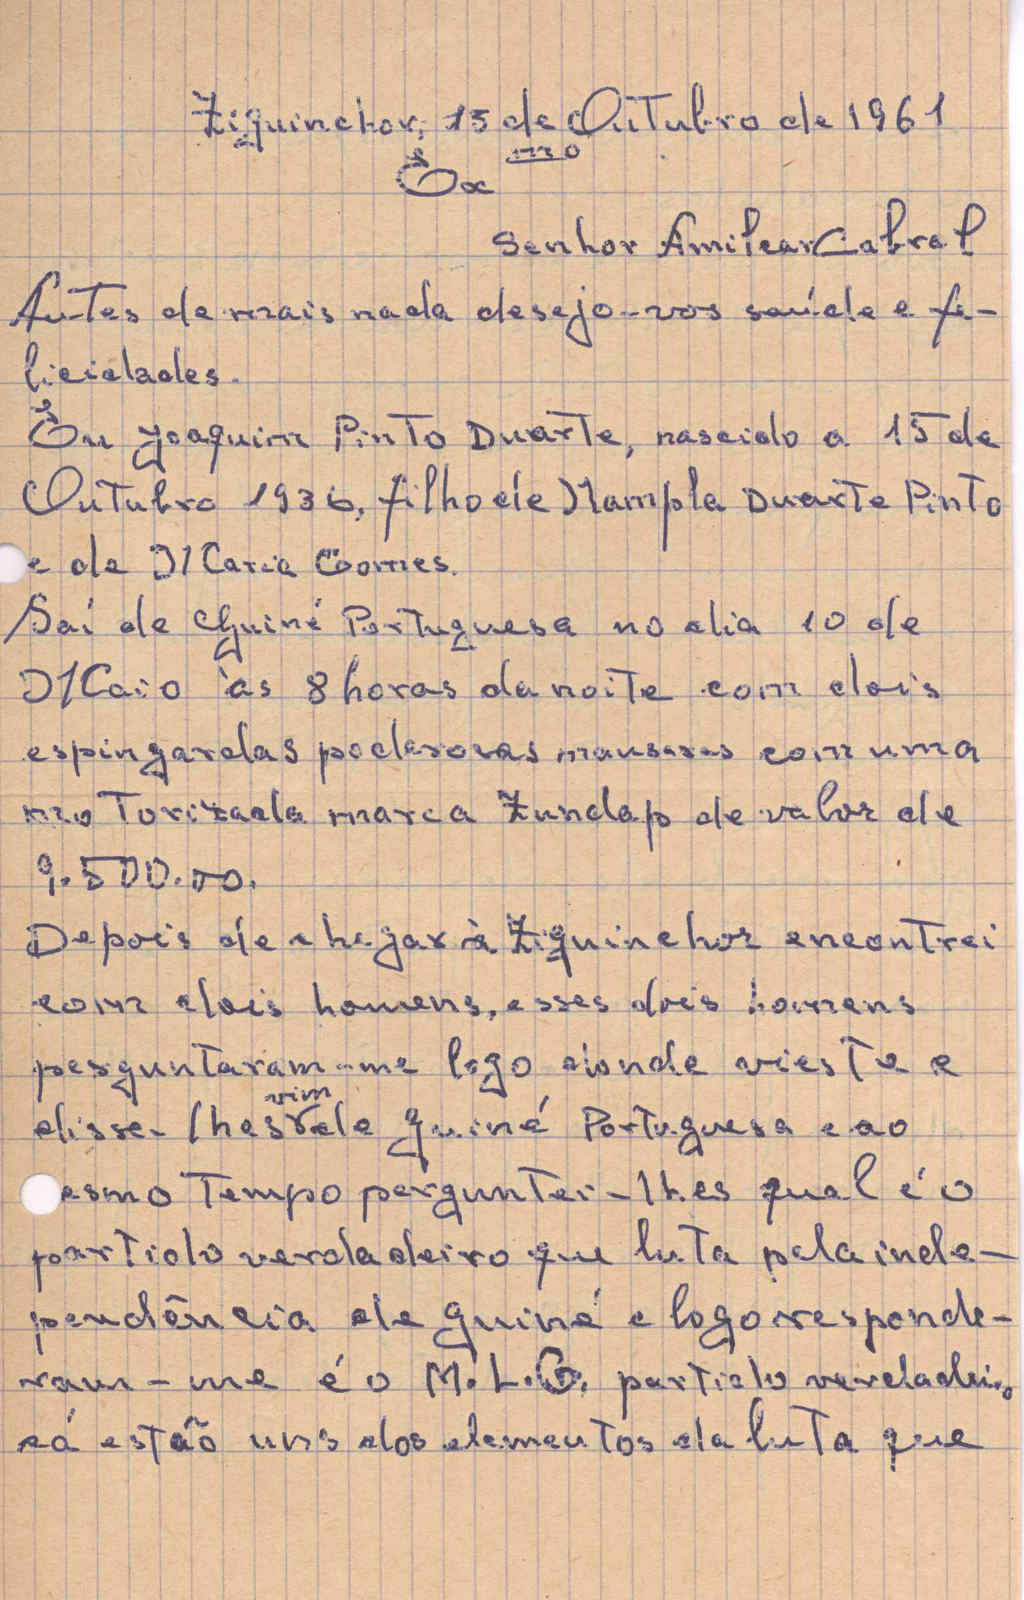 Ziguinchor, 15 de Outubro de 1961
Exmo
Senhor Amilcar Cabral
Antes de mais nada desejo-vos saúde e fe-
licidades.
Eu Joaquim Pinto Duarte, nascido a 15 de
Outubro 1936, filho de Nampla Duarte Pinto
e de Maria Gomes.
Saí de Guiné Portuguesa no dia 10 de
Maio às 8 horas da noite com dois
espingardas poderosas mauseres com uma
motorizada marca Zundap de valor de
9.500.00.
Depois de chegar à Ziguinchor encontrei
com dois homens, esses dois homens
perguntaram-me logo d'onde vieste e
disse-lhes vim de Guiné Portuguesa e ao
esmo tempo perguntei-lhes qual é o
partido verdadeiro que luta pela inde-
pendência de Guiné e logo responde-
ram-me é o M.L.G. partido verdadeiro
cá estão uns dos elementos da luta que